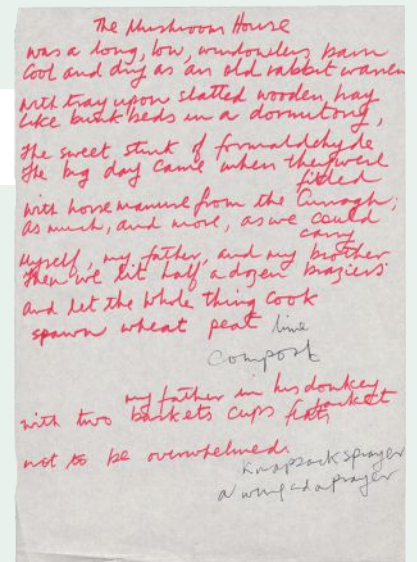 The Mushroom House
was a long, low, windowless barn
Cool and dry as an old rabbit warren
with tray upon slatted wooden tray
like bunk beds in a dormitory,
The sweet stink of formaldehyde
The big day came when they were
filled
with horse manure from the Curragh;
as much, and more, as we could
carry
Myself, my father, and my brother
Then we lit half a dozen braziers
and let the whole thing cook
spawn wheat peat lime
compost
my father in his donkey
jacket
with two baskets cups
not to be overwhelmed.
knapsack sprayer
a wing and a prayer